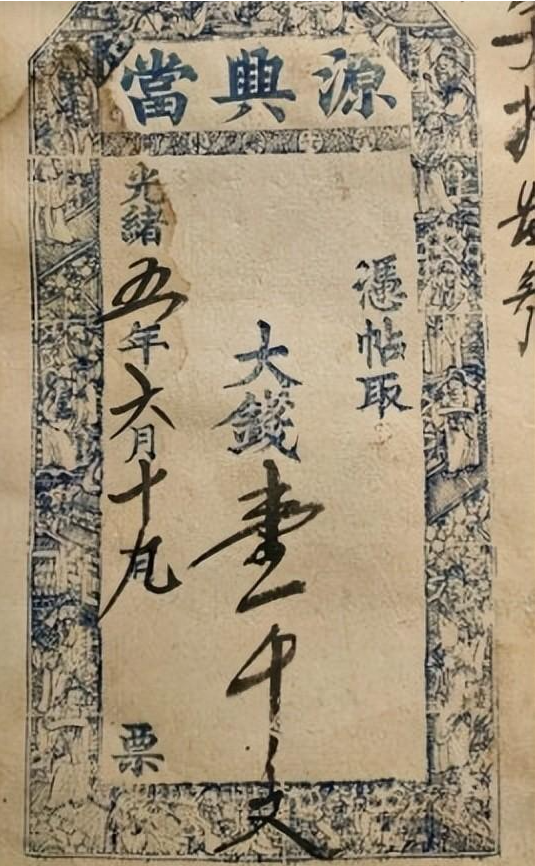 源興當
憑帖取
大錢壹千文
光緒五年六月十九日票